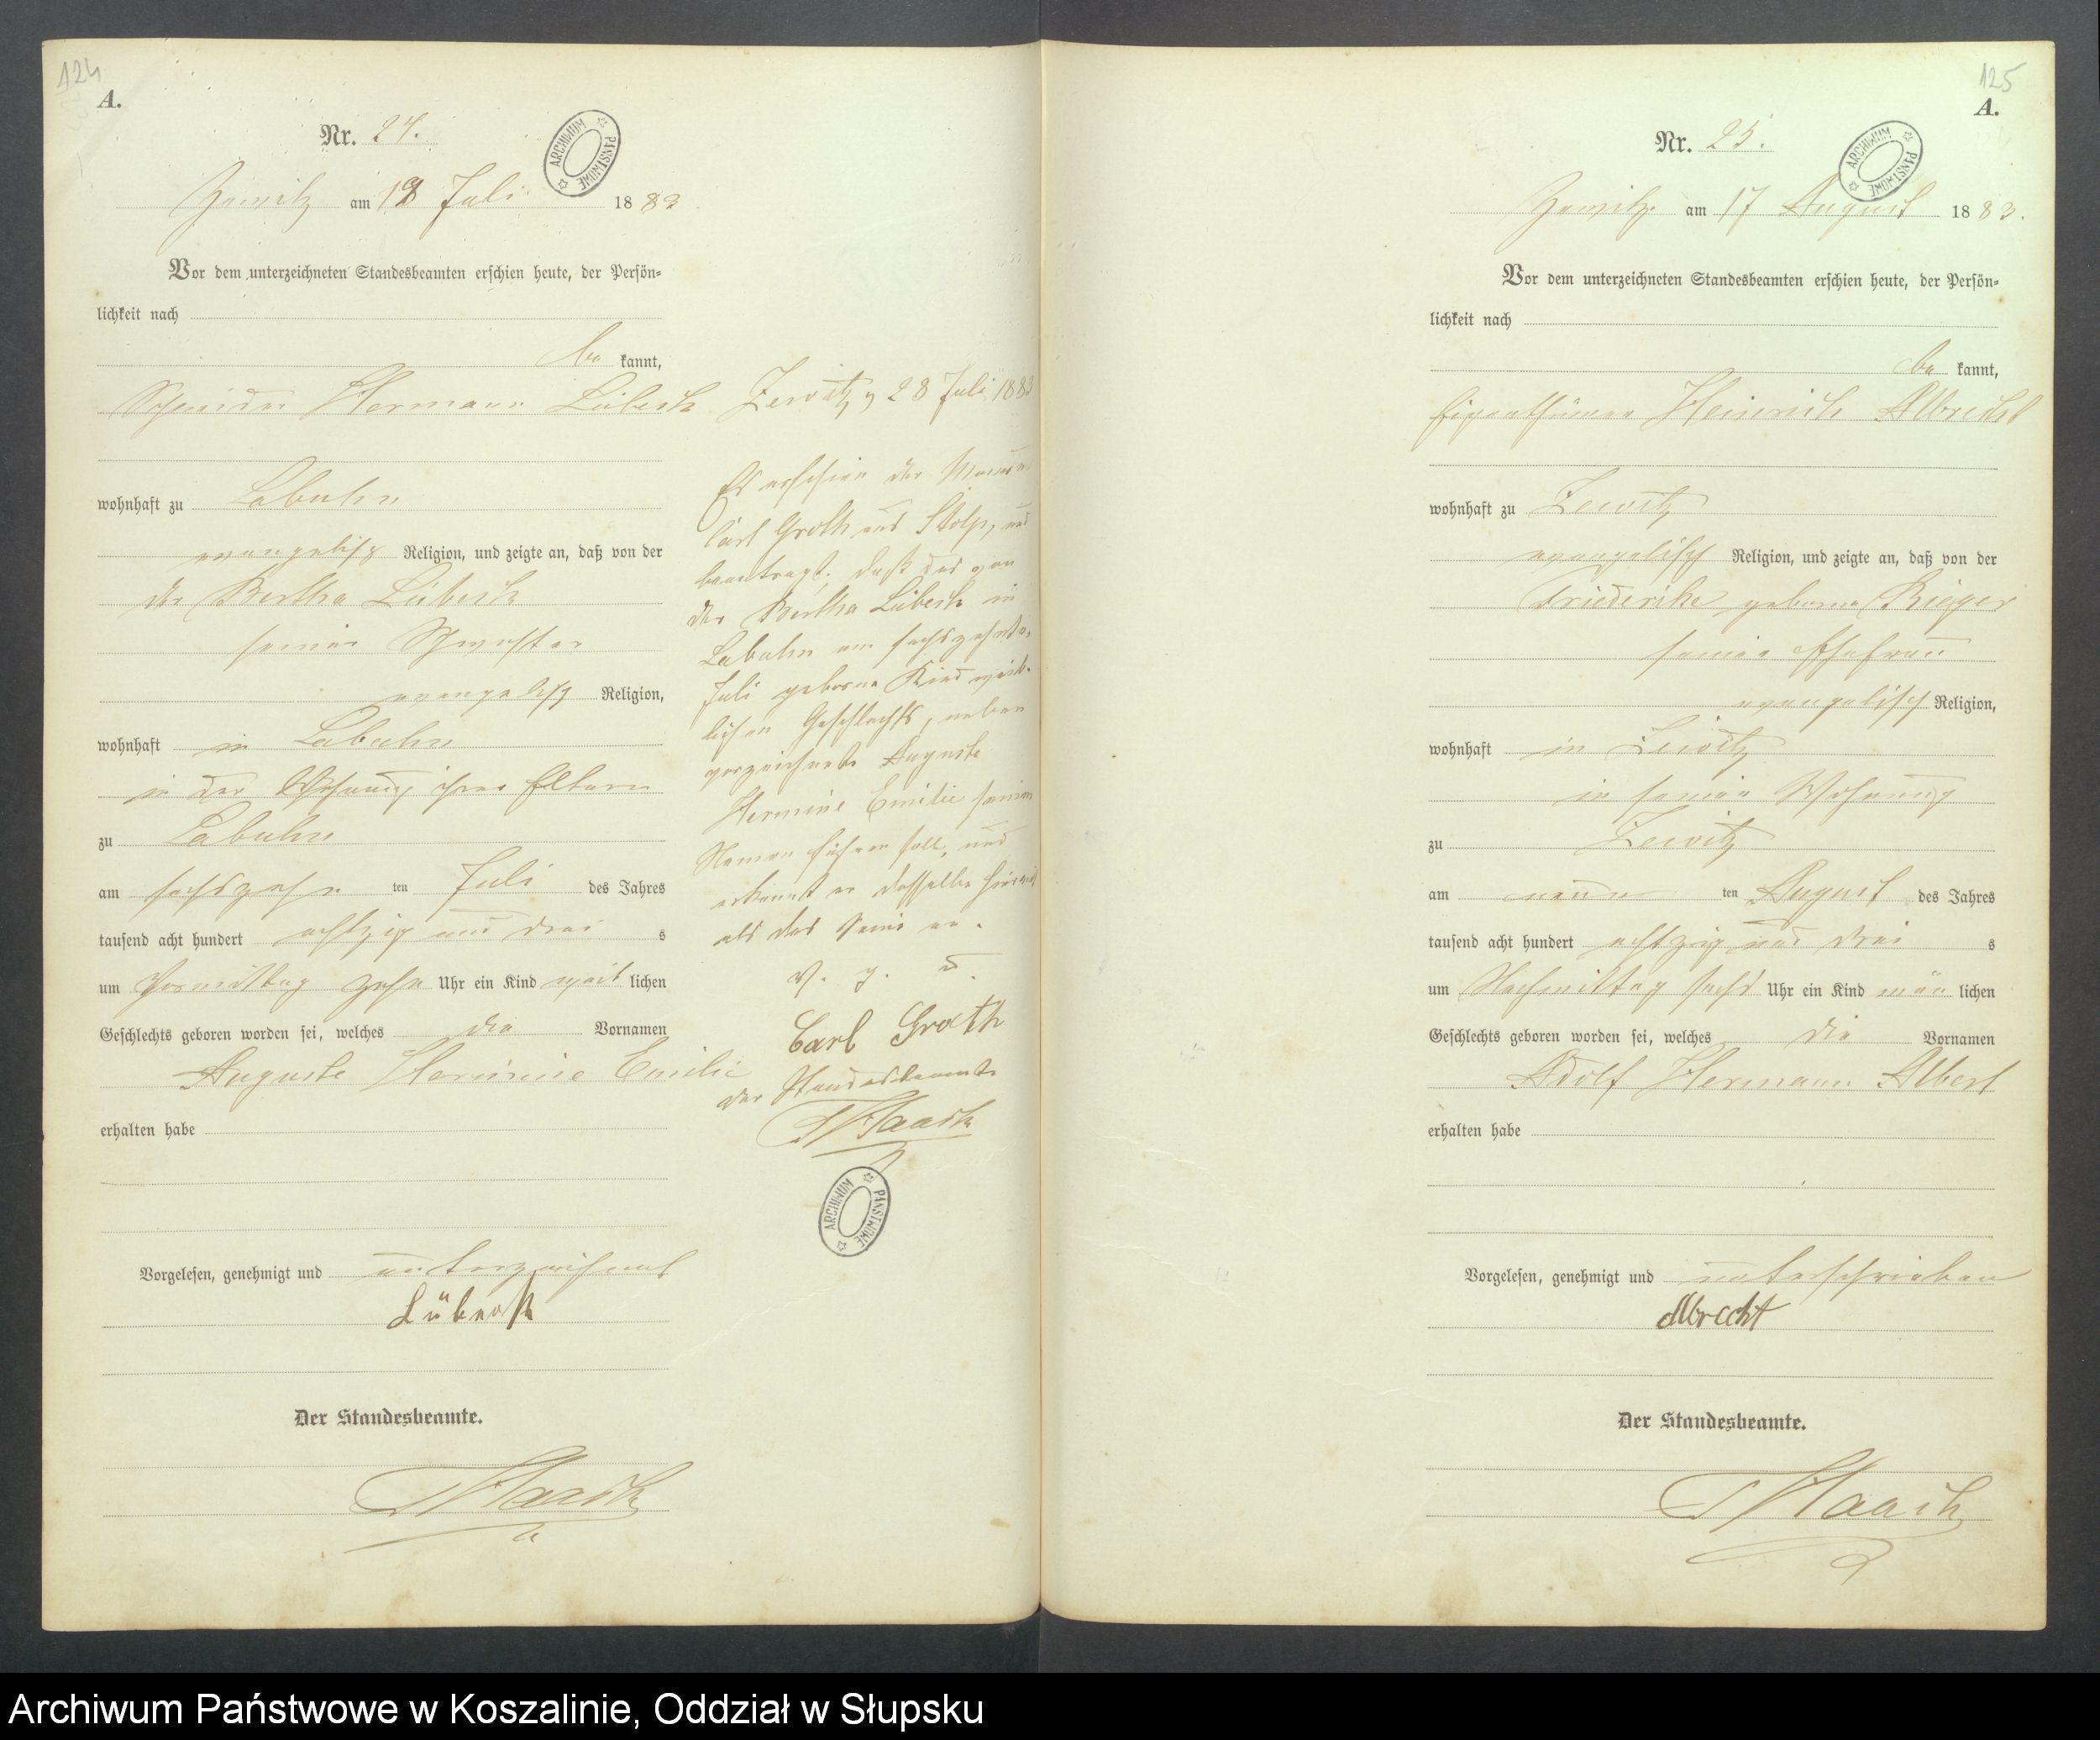 124
A.
Nr. 24.
Zewitz am 18 Juli 1883
Vor dem unterzeichneten Standesbeamten erschien heute, der Persön-
lichkeit nach
be kannt,
Schneider Hermann Lübeck
wohnhaft zu Labuhn
evangelisch Religion, und zeigte an, daß von der
der Bertha Lübeck
seiner Schwester
evangelisch Religion,
wohnhaft in Labuhn
in der Wohnung ihrer Eltern
zu Labuhn
am sechszehn ten Juli des Jahres
tausend acht hundert achtzig und drei s
um Vormittag zehn Uhr ein Kind weib lichen
Geschlechts geboren worden sei, welches die Vornamen
Auguste Hermine Emilie
erhalten habe
Vorgelesen, genehmigt und unterzeichnet
Lübeck
Der Standesbeamte.
Haack
Zewitz, 28 Juli 1883
Es erschien der
Carl Groth aus Stolp, und
beantragt, daß das von
der Bertha Lübeck in
Labuhn am sechszehnten
Juli geborne Kind weib-
lichen Geschlechts, neben
verzeichnete Auguste
Hermine Emilie seinen
Namen führen soll, und
erkennt er dasselbe hiermit
als das Seine an.
v. g. u.
Carl Groth
der Standesbeamte
Haack
ARCHIWUM PAŃSTWOWE
ARCHIWUM PAŃSTWOWE
125
A.
Nr. 25.
ARCHIWUM PAŃSTWOWE
Zewitz am 17 August 1883.
Vor dem unterzeichneten Standesbeamten erschien heute, der Persön-
lichkeit nach
be kannt,
Eigenthümer Heinrich Albrecht
wohnhaft zu Zewitz
evangelisch Religion, und zeigte an, daß von der
Friederike geborne Rieger
seiner Ehefrau
evangelisch Religion,
wohnhaft in Zewitz
in seiner Wohnung
zu Zewitz
am neun ten August des Jahres
tausend acht hundert achtzig und drei s
um Nachmittag sechs Uhr ein Kind män lichen
Geschlechts geboren worden sei, welches die Vornamen
Adolf Hermann Albert
erhalten habe
Vorgelesen, genehmigt und unterschrieben
Albrecht
Der Standesbeamte.
Haack
Archiwum Państwowe w Koszalinie, Oddział w Słupsku